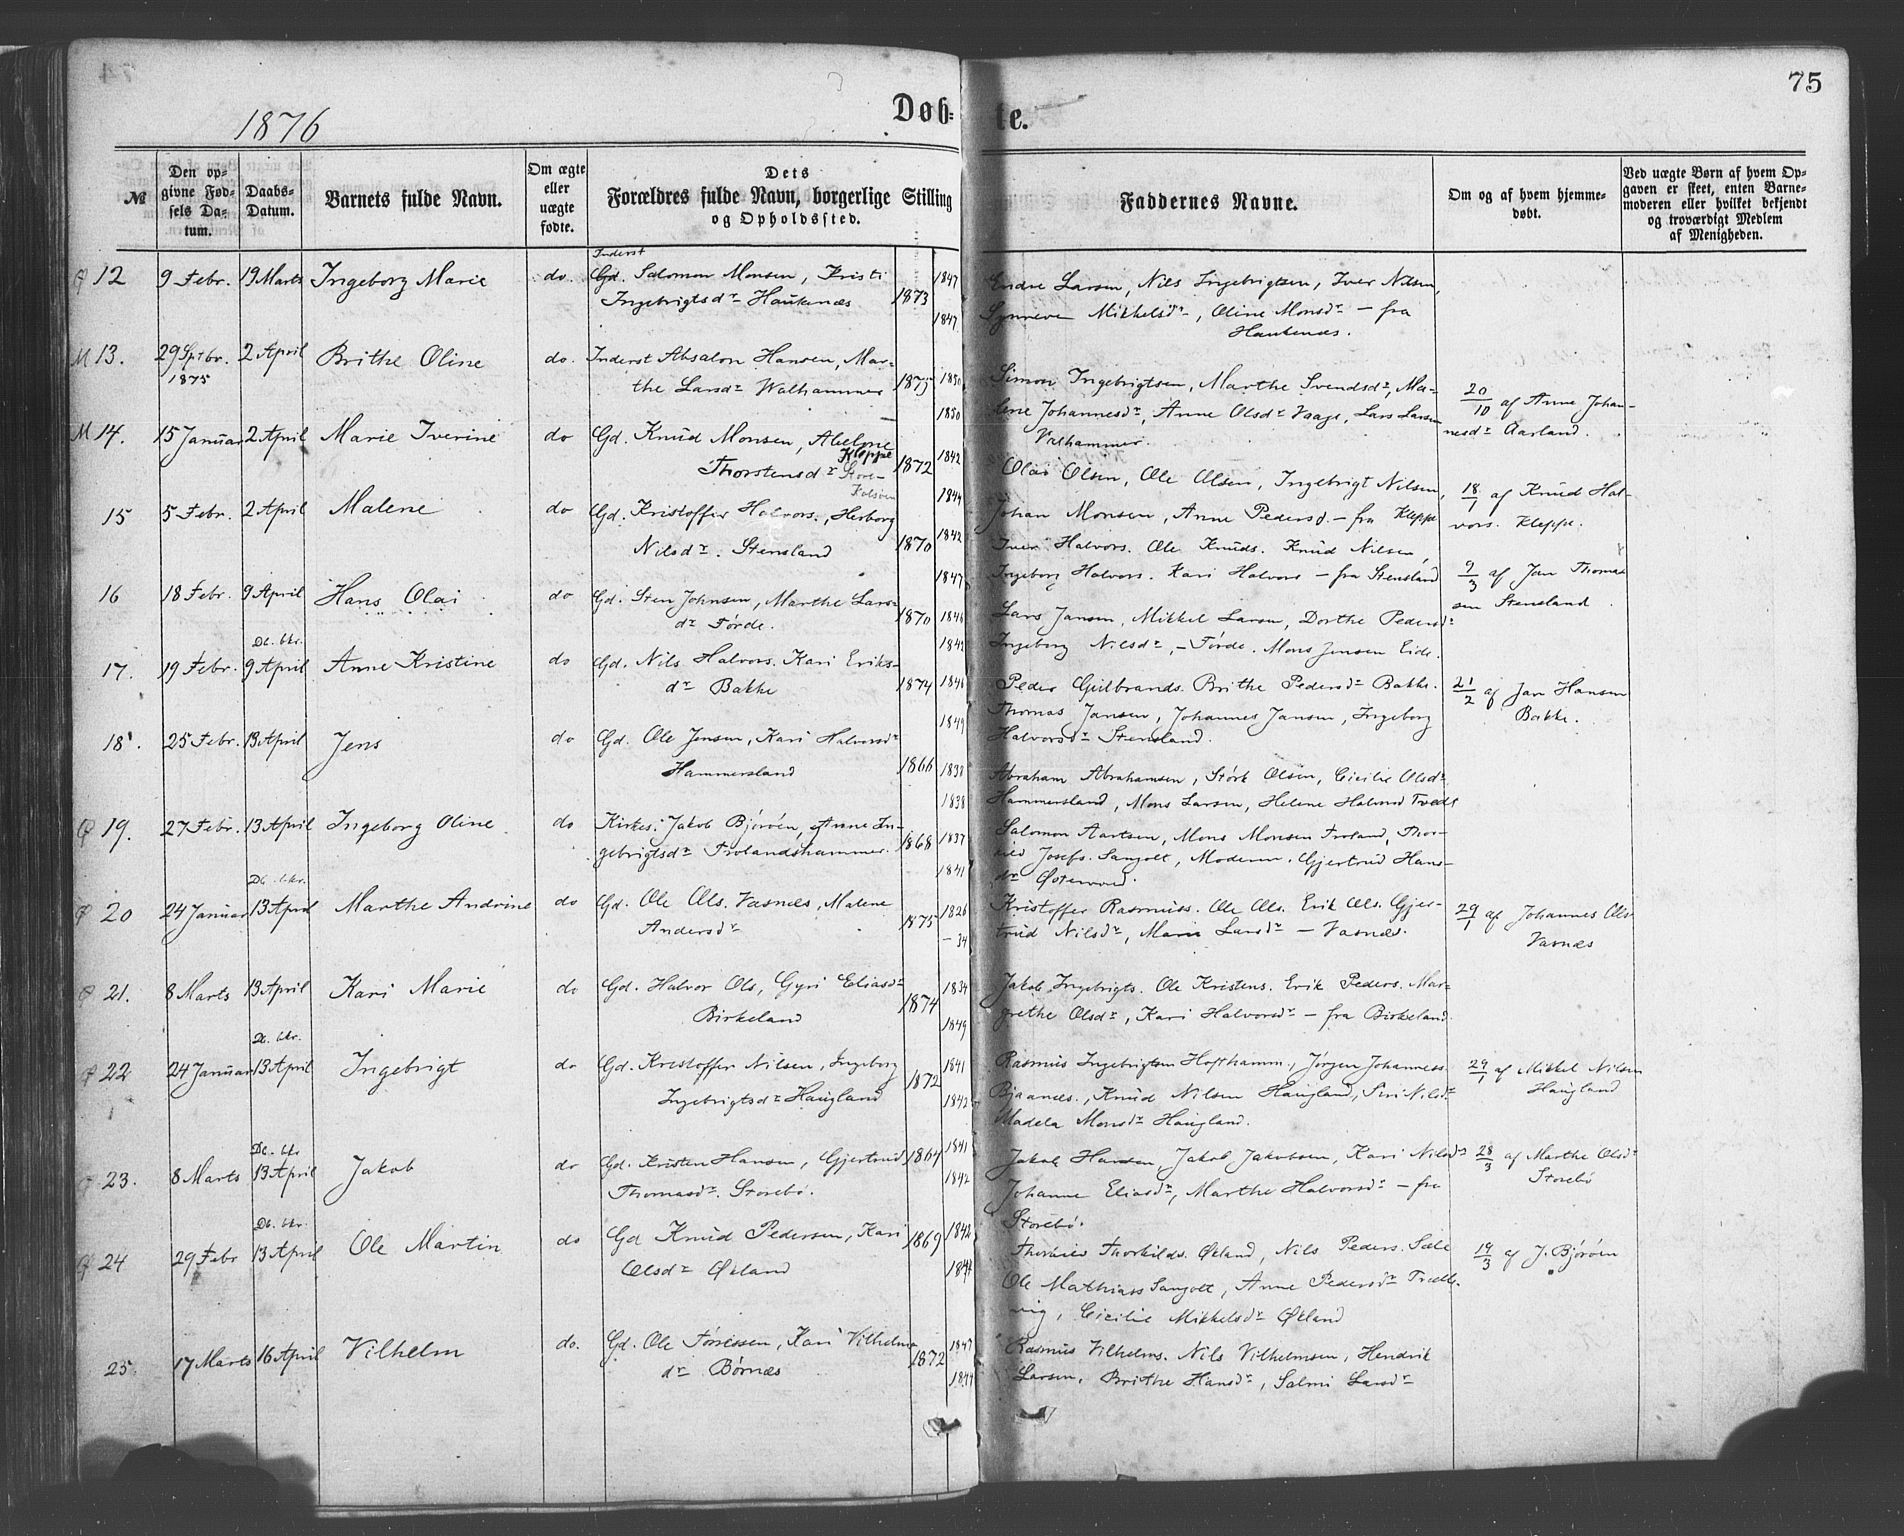 75
1876
Døb-
te.
№
Den op-
givne Fød-
sels Da-
tum.
Daabs-
Datum.
Barnets fulde Navn.
Om ægte
eller
uægte
fødte.
Dets
Forældres fulde Navn, borgerlige Stilling
og Opholdssted.
Faddernes Navne.
Om og af hvem hjemme-
døbt.
Ved uægte Børn af hvem Op-
gaven er skeet, enten Barne-
moderen eller hvilket bekjendt
og troværdigt Medlem
af Menigheden.
12 9 Febr. 19 Marts Ingeborg Marie do.
Inderst
Gd. Salomon Monsen, Kristi
Ingebrigtsdr Haukenæs
1873 1847
1847
Endre Larsen, Nils Ingebrigtsen, Iver Nilsen,
Mikkelsdr, Oline Monsdr – fra
Haukenæs.
M 13. 29 Sptbr. 2 April Brithe Oline do.
1875
Inderst Absalon Hansen, Mar-
the Larsdr Walhammer
1875 1850
1850
Simon Ingebrigtsen, Marthe Svendsdr, Ma-
lene Johannesdr, Anne Olsdr Vaage, Lars Larsen
Valhammer.
20/10 af Anne Johan-
nesdr Aarland.
M 14. 15 Januar 2 April Marie Iverine do
Gd. Knud Monsen, Abelone
Thorstensdr Kleppe
Store-
Kalsøen
1872 1842
1844
Olai Olsen, Ole Olsen, Ingebrigt Nilsen,
Johan Monsen, Anne Pedersd – fra Kleppe
18/1 af Knud Hal-
vors. Kleppe.
15 5 Febr. 2 April Malene do
Gd. Kristoffer Halvors., Herborg
Nilsdr. Stensland
1870 1842
1847
Iver Halvors. Ole Knuds. Knud Nilsen,
Ingeborg Halvors. Kari Halvors – fra Stensland
9/3 af Jan Thomas
sen Stensland
16 18 Febr. 9 April Hans Olai do
Gd. Sten Johnsen, Marthe Lars-
dr Førde.
1870 1846
1842
Lars Jansen, Mikkel Larsen, Dorthe Pedersdr
Ingeborg Nilsdr, – Førde. Mons Jensen Eide.
17. 19 Febr. 9 April Anne Kristine do
Gd. Nils Halvors. Kari Eriks-
dr Bakke
1874 1846
1849
Peder Gulbrands. Brithe Pedersdr Bakke.
Thomas Jansen, Johannes Jansen, Ingeborg
Halvorsdr Stensland.
21/2 af Jan Hansen
Bakke.
18. 25 Febr. 13 April Jens do
Gd. Ole Jensen, Kari Halvorsdr
Hammersland
1866 1838
1838
Abraham Abrahamsen, Størk Olsen, Cicilie Olsdr
Hammersland, Mons Larsen, Helene Halvorsd Tvedt
19. 27 Febr. 13 April Ingeborg Oline do
Kirkes. Jakob Bjørøen, Anne In-
gebrigtsdr Trolandshammer.
1868 1837
1841
Salomon Aartsen, Mons Monsen Troland, Thor-
Josefs. Sangolt, Moderen, Gjertrud Hans-
dr
20 24 Januar 13 April Marthe Andrine do
Gd. Ole Ols. Vasnæs, Malene
Andersdr
1875 1826
– 34
Kristoffer Rasmuss. Ole Ols. Erik Ols. Gjer-
trud Nilsdr, Larsdr – Vasnæs.
29/1 af Johannes Ols
Vasnæs
21. 8 Marts 13 April Kari Marie do
Gd. Halvor Ols, Gyri Eliasdr
Birkeland
1874 1834
1849
Jakob Ingebrigts. Ole Kristens. Erik Peders. Mar-
grethe Olsdr, Kari Halvorsdr – fra Birkeland
22 24 Januar 13 April Ingebrigt do
Gd. Kristoffer Nilsen, Ingeborg
Ingebrigtsdr Haugland
1872 1841
1842
Rasmus Ingebrigtsen Hofthamm., Jørgen Johanness.
Bjaanæs., Knud Nilsen Haugland, Siri Nilsdr
Madela Monsdr Haugland.
29/1 af Mikkel Nilsen
Haugland
23. 8 Marts 13 April Jakob do
Gd. Kristen Hansen, Gjertrud
Thomasdr. Storebø.
1864 1841
1842
Jakob Hansen, Jakob Jakobsen, Kari Nilsdr
Johanne Eliasdr, Marthe Halvorsdr – fra
Storebø.
28/3 af Marthe Olsdr
Storebø
24 29 Febr 13 April Ole Martin do
Gd Knud Pedersen, Kari
Olsdr Økland
1869 1842
1844
Thorkilds. Økland, Nils Peders. Sæle
Ole Mathias Sangolt, Anne Pedersdr Trælle-
vig, Cicilie Mikkelsdr Økland
19/3 af J. Bjørøen
25. 17 Marts 16 April Vilhelm do.
Gd. Ole Tørressen, Kari Vilhelms
dr Børnæs
1872 1847
1844
Rasmus Vilhelms. Nils Vilhelmsen, Hendrik
Larsen, Brithe Hansdr, Salmi Larsdr